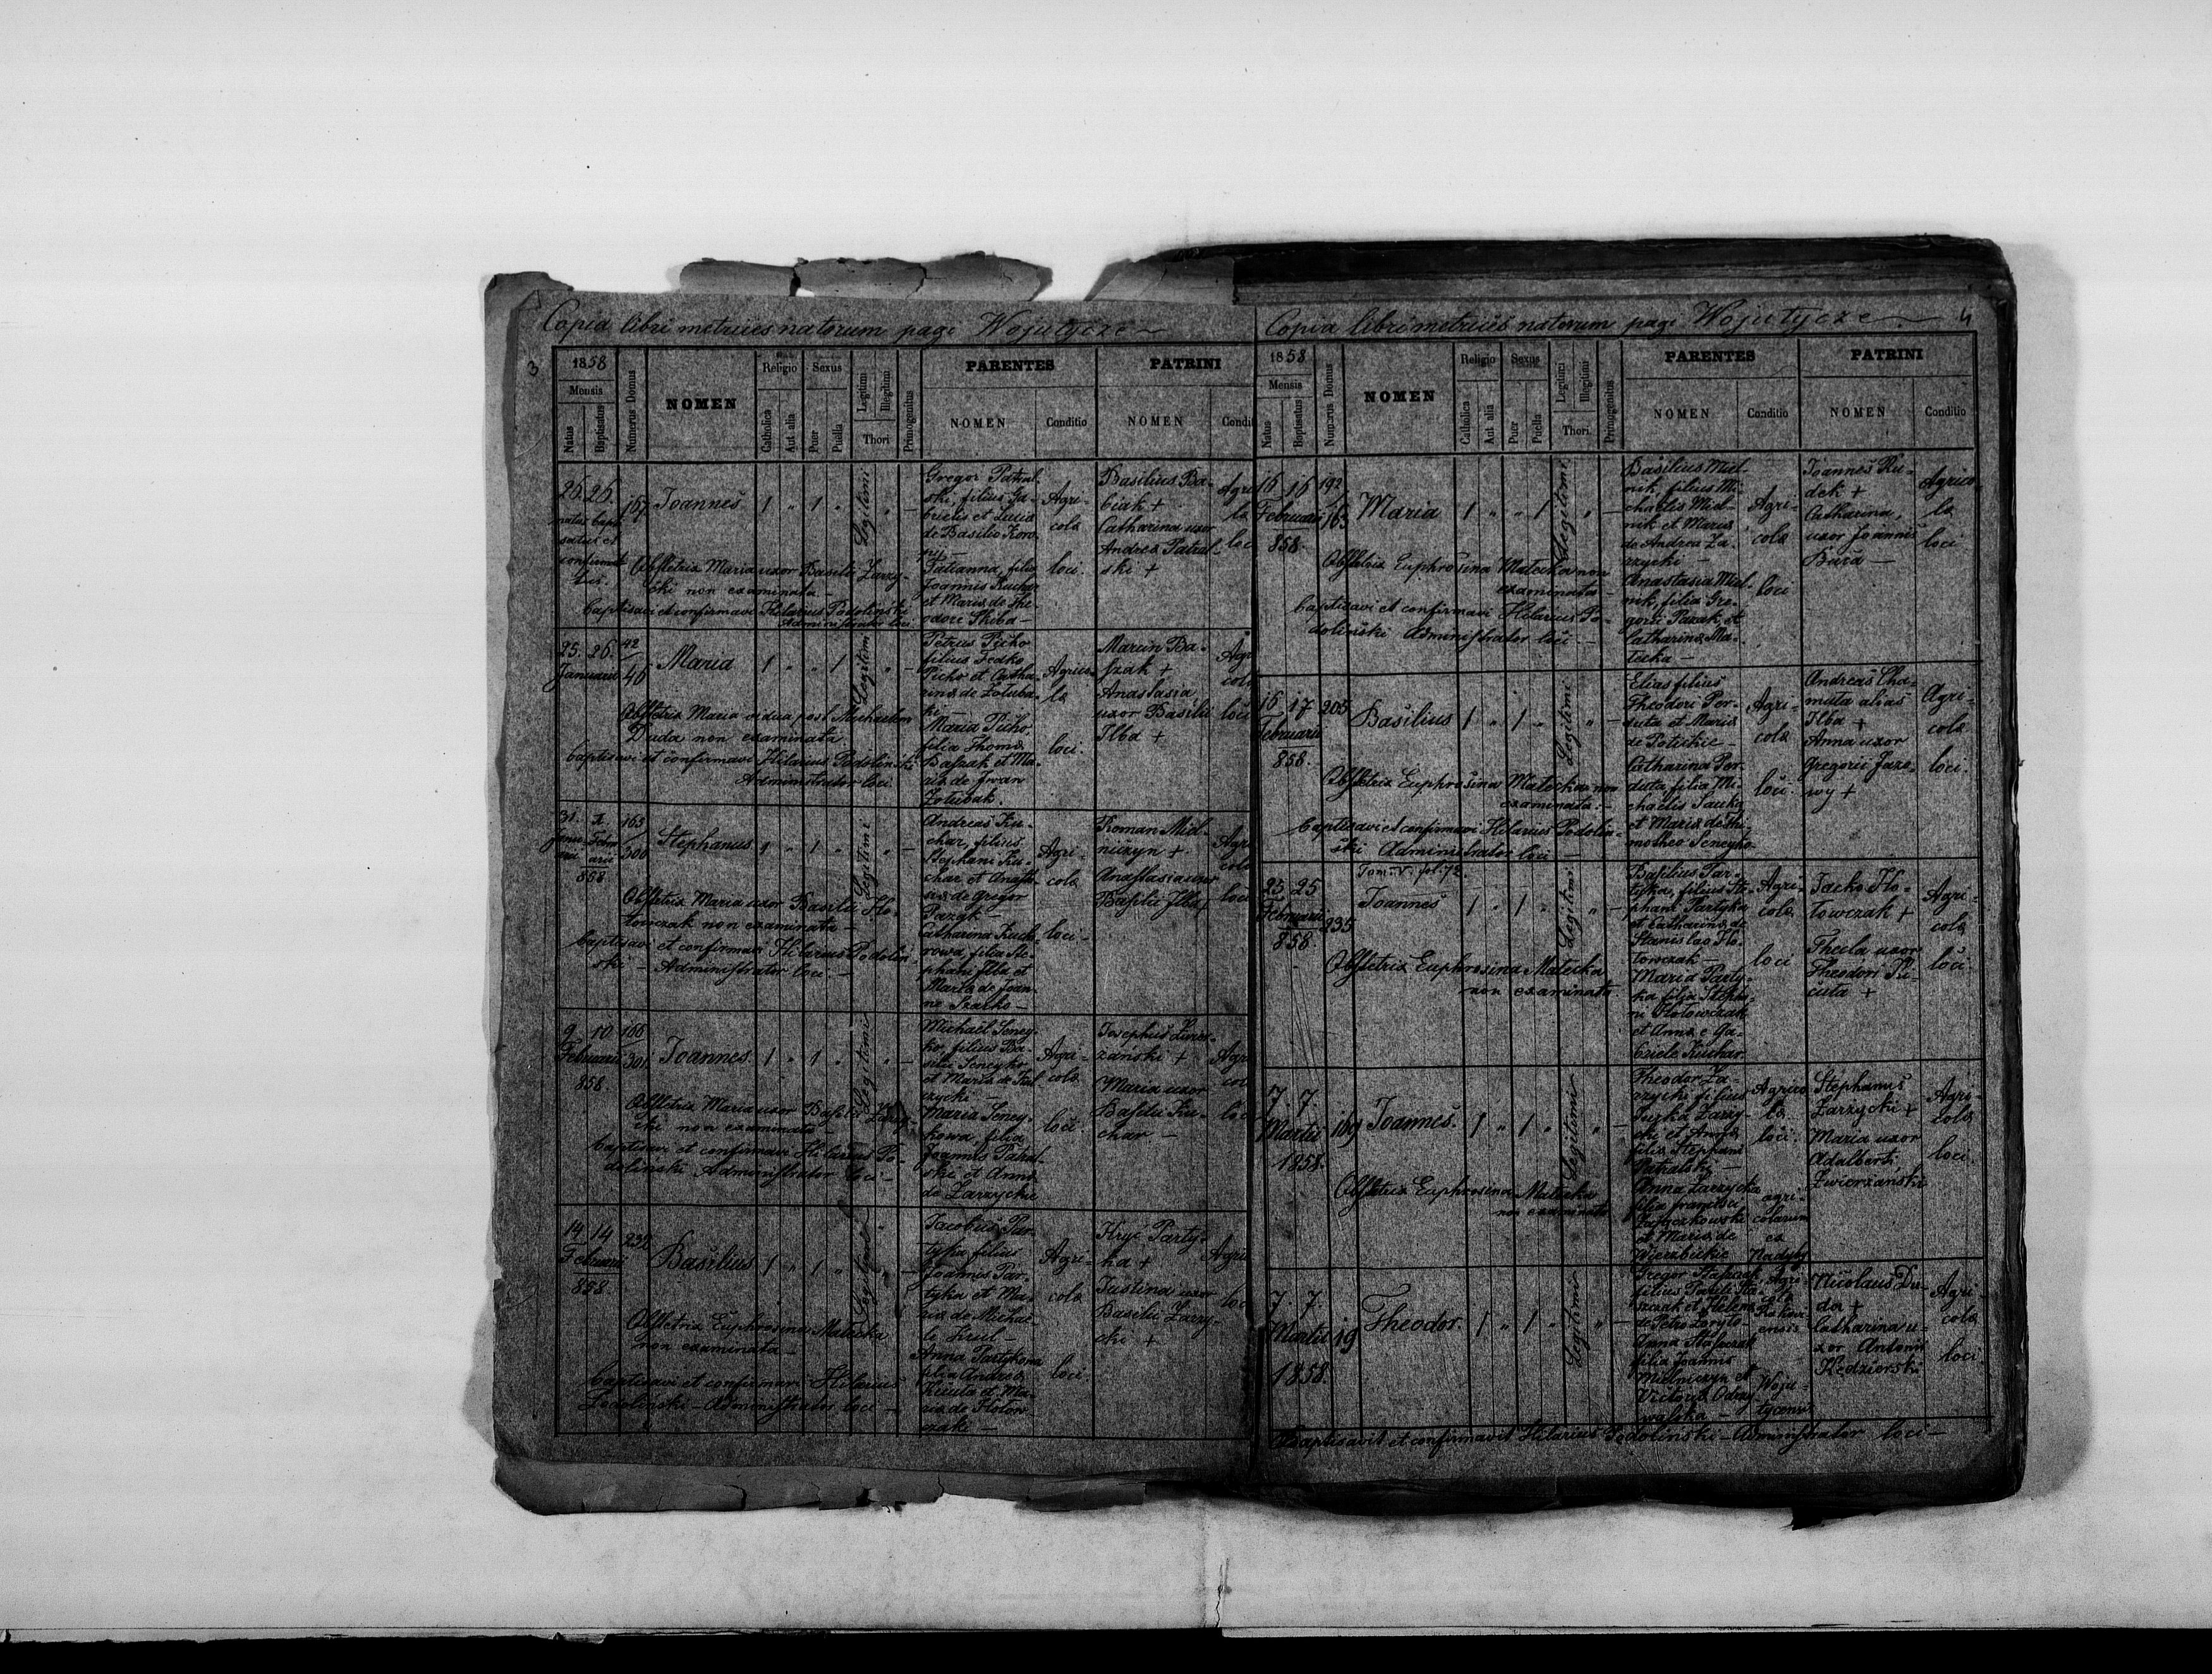 Copia libri metrices natorum pagi Wojutycze
3
1858
Mensis
Natus
Baptisatus
Numerus Domus
NOMEN
Religio
Catholica
Aut. alia
Sexus
Puer
Puella
Legitimi
Illegitimi
Thori
Primogenitus
PARENTES
NOMEN
Conditio
PATRINI
NOMEN
Condi
26. 26.
natus bapti
satus et
confirmat
167
Joannes
1 " 1 "
Legitimi
" –
Gregor Patral
ski, filius Ga-
brielis et
de Basilio Koro
Tatianna, filia
Joannis Kuchar
et Maria de The-
odore Skiba –
Agri-
cola
loci.
Basilius Ba-
biak +
Catharina uxor
Andrea Patral-
ski +
Agri
la
loc
Obstetrix Maria uxor Basilii Zarzy-
cki non examinata –
baptisavi et confirmavi Hilarius Podolinski
Administrator loci.
25. 26.
Januarii
42
46
Maria
1 " " 1
Legitimi
" –
Petrus Picho
filius Fedko
Picho et Catha-
rina de Zotuba-
ki –
Maria Picho,
filia Thoma
Baszak et Ma-
ria de Iwan
Zotubak.
Agrico-
la
loci.
Marcin Ba-
szak +
Anastasia
uxor Basilii
Ilba +
Agr
col
loci
Obstetrix Maria vidua post Michaelem
Duda non examinata
baptisavi et confirmavi Hilarius Podolinski
Administrator loci.
31. 1
Febru
arii
858
163
300
Stephanus
1 " 1 "
Legitimi
" –
Andreas Ku-
char, filius
Stephani Ku-
char et Anasta-
sia de Gregor
Pazak –
Catharina Kuch-
rowa, filia Ste-
phani Ilba et
Maria de Joan-
ne Szatko –
Agri-
cola
loci –
Roman Miel-
niczyn +
Anastasia uxor
Basilii Ilba +
Agri
cola
loci
Obstetrix Maria uxor Basilii Ho-
towczak non examinata –
baptisavi et confirmavi Hilarius Podolin-
ski – Administrator loci –
9 10
Februarii
858
166
301
Joannes
1 " 1 "
Legitimi
" –
Michael Seney-
ko, filius Ba-
silii Seneyko
et Maria de Kul
czycki –
Maria Seney-
kowa, filia
Joannis Patral-
ski et Anna
de Zarzyckie
Agri-
cola
loci
Josephus
zański +
Maria uxor
Basilii Ku-
char –
Agr
col
loc
Obstetrix Maria uxor Basilii
cki non examinata –
baptisavi et confirmavi Hilarius Po-
dolinski Administrator loci –
14 14
Februarii
858
232
Basilius
1 " 1 "
Legitimi
" –
Jacobus Par-
tyka filius
Joannis Par-
tyka et Ma-
ria de Michae-
le Krul –
Anna Partykowa
filia Andrea
Kicuta et Ma-
ria de Hotow-
czaki –
Agri-
cola
loci
Hryć Party-
ka +
Justina uxor
Basilii Zarzy-
cki +
Agri
loc
Obstetrix Euphrosina Matecka
non examinata –
baptisavi et confirmavi Hilarius
Podolinski – Administrator loci –
Copia libri metrices natorum pagi Wojutycze
4
1858
Mensis
Natus
Baptisatus
Numerus Domus
NOMEN
Religio
Catholica
Aut alia
Sexus
Puer
Puella
Legitimi
Illegitimi
Thori
Primogenitus
PARENTES
NOMEN
Conditio
PATRINI
NOMEN
Conditio
16 16
Februarii
858
192
163
Maria
1 " " 1
Legitimi
" –
Basilius Miel-
nik, filius Mi-
chaelis Miel-
nik et Maria
de Andrea Za-
rzycki –
Anastasia Miel-
nik, filia Gre-
gorii Pazak et
Catharina Ma-
tecka –
Agri-
cola
loci
Joannes Ru-
dek +
Catharina,
uxor Joannis
Bura –
Agrico-
la
loci
Obstetrix Euphrosina Matecka non
examinata –
baptisavi et confirmavi Hilarius Po-
dolinski Administrator loci –
16 17
Februarii
858.
205
Basilius
1 " 1 "
Legitimi
" –
Elias filius
Theodori Per-
duta et Maria
de Potickie –
Catharina Per-
duta, filia Mi-
chaelis Sauka
et Maria de Thi-
motheo Seneyko
Agri-
cola
loci
Andreas Cha-
muta alias
Ilba +
Anna uxor
Gregorii Jazo-
wy +
Agri-
cola
loci.
Obstetrix Euphrosina Matecka non
examinata –
baptisavi et confirmavi Hilarius Podolin-
ski Administrator loci –
Tom: V. fol. 72.
25 25
Februarii
858
235
Joannes
1 " 1 "
Legitimi
" –
Basilius Par-
tyka, filius Ste-
phani Partyka
et Catharina de
Stanislao Ho-
towczak –
Maria Party-
ka filia Stepha-
ni Hotowczak
et Anna e Ga-
briele Kuchar
Agri-
cola
loci
Jacko Ho-
towczak +
Thecla uxor
Theodori Ki-
cuta +
Agri-
cola
loci
Obstetrix Euphrosina Matecka
non examinata
7 7.
Martii
1858.
169
Joannes.
1 " 1 "
Legitimi
" –
Theodor Za-
rzycki filius
Jurka Zarzy-
cki et Anna
filia Stephani
Patralski –
Anna Zarzycka
filia Francisci
et Maria de
Wierzbickie
Agrico
la
loci.
agri-
colarum
ex
Nadyby
Stephanus
Zarzycki +
Maria uxor
Adalberti
Zwierzański
Agri-
cola
loci.
Obstetrix Euphrosina Matecka
non examinata
7. 7.
Martii
1858.
19
Theodor.
1 " 1 "
Legitimi
" –
Gregor Staszczak
filius Pauli Sta-
szczak et Helena
de Petro
Anna Staszczak
filia Joannis
Mielniczyn et
Victoria Odrzy-
walska –
Agri
cola
Woju-
tycensis
Nicolaus Du-
da +
Catharina u-
xor Antonii
Kędzierski
Agri-
cola
loci
Baptisavit et confirmavit Hilarius Podolinski – Administrator loci –